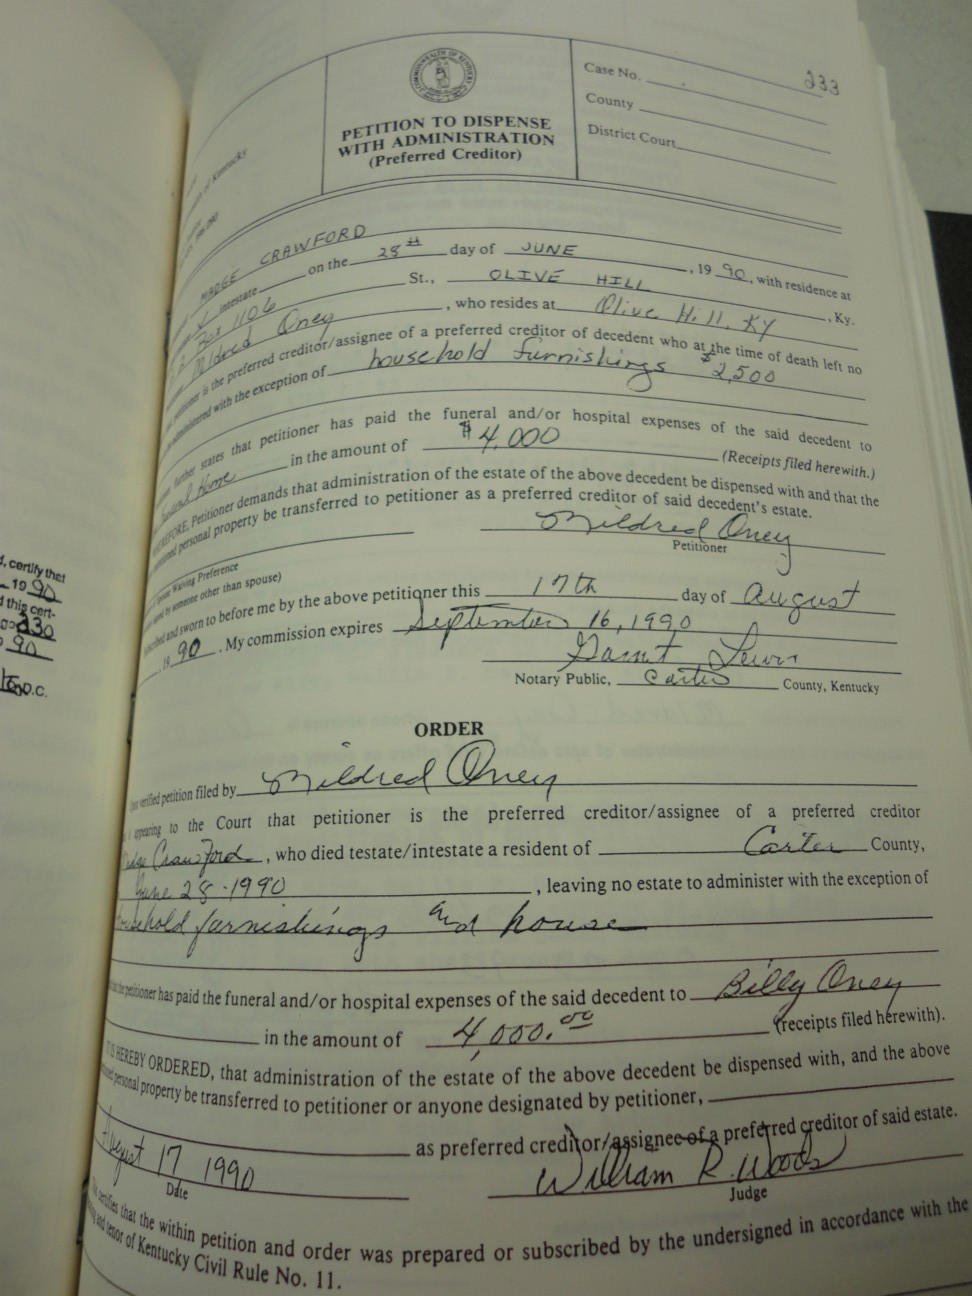 233
Case No.
County
District Court
COMMONWEALTH OF KENTUCKY
PETITION TO DISPENSE
WITH ADMINISTRATION
(Preferred Creditor)
of Kentucky
MADGE CRAWFORD
intestate on the 28th day of JUNE, 1990, with residence at
Box 1106 St., OLIVE HILL, Ky.
Mildred Oney, who resides at Olive Hill, KY
petitioner is the preferred creditor/assignee of a preferred creditor of decedent who at the time of death left no
administered with the exception of household furnishings $2,500
further states that petitioner has paid the funeral and/or hospital expenses of the said decedent to
Funeral Home in the amount of $4,000 (Receipts filed herewith.)
WHEREFORE, Petitioner demands that administration of the estate of the above decedent be dispensed with and that the
personal property be transferred to petitioner as a preferred creditor of said decedent's estate.
Mildred Oney
Petitioner
Waiving Preference
by someone other than spouse)
and sworn to before me by the above petitioner this 17th day of August
, 1990. My commission expires September 16, 1990
Lewis
Notary Public, Carter County, Kentucky
ORDER
verified petition filed by Mildred Oney
appearing to the Court that petitioner is the preferred creditor/assignee of a preferred creditor
Crawford, who died testate/intestate a resident of Carter County,
June 28-1990, leaving no estate to administer with the exception of
household furnishings and house
the petitioner has paid the funeral and/or hospital expenses of the said decedent to Billy Oney
in the amount of 4,000.00 (receipts filed herewith).
IT IS HEREBY ORDERED, that administration of the estate of the above decedent be dispensed with, and the above
personal property be transferred to petitioner or anyone designated by petitioner,
as preferred creditor/assignee of a preferred creditor of said estate.
August 17 1990 William R. Woods
Date Judge
certifies that the within petition and order was prepared or subscribed by the undersigned in accordance with the
and tenor of Kentucky Civil Rule No. 11.
, certify that
1990
this cert-
230
90
D.C.